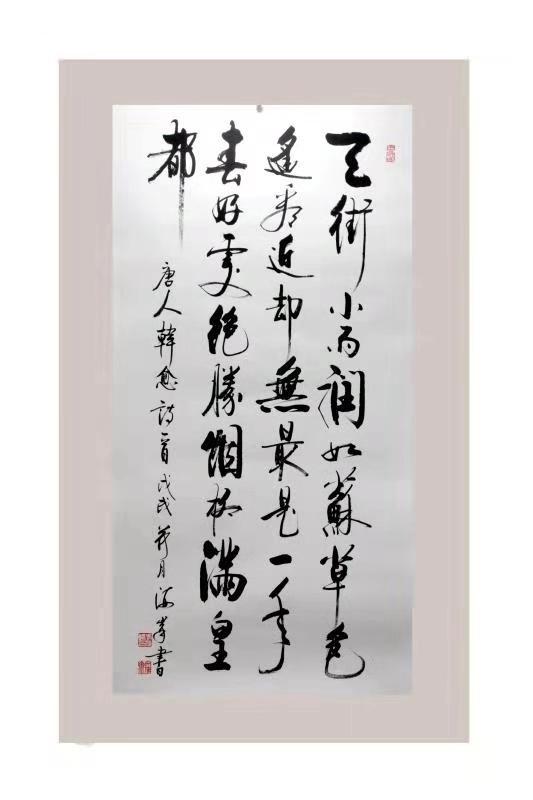 天街小雨潤如蘇草色
遙看近却無最是一年
春好處絕勝烟柳滿皇
都
唐人韓愈詩一首戊戌荷月海峯書